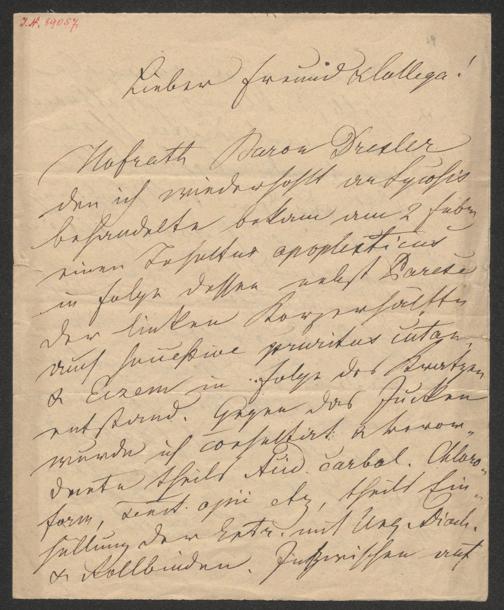 I.N. 69057
Lieber Freund & Collega!
Hofrath Baron Drexler
den ich wiederhohlt an Sycosis
behandelte bekam am 2 Febr
einen Insultus apoplecticus
in Folge dessen nebst Parese
der linken Körperhälfte
auch pruritus cutan.
& Eczem in Folge des Kratzen
entstand. Gegen das Jucken
wurde ich consultirt & veror-
dnete theils Acid. carbol. Chloro-
form, Tinct. opii etz, theils Ein-
hüllung der Extr. mit Ung. Diach.
& Rollbinden. Inzwischen auf